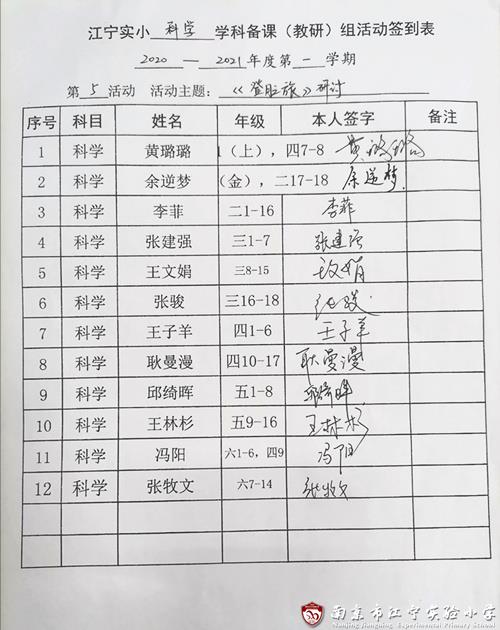 江宁实小 科学 学科备课（教研）组活动签到表
2020 — 2021年度第 一 学期
第 5 活动 活动主题： 研讨
序号 科目 姓名 年级 本人签字 备注
1 科学 黄璐璐 （上），四7-8 黄璐璐
2 科学 余逆梦 （金），二17-18 余逆梦
3 科学 李菲 二1-16 李菲
4 科学 张建强 三1-7 张建强
5 科学 王文娟 三8-15 文娟
6 科学 张骏 三16-18 张骏
7 科学 王子羊 四1-6 王子羊
8 科学 耿曼漫 四10-17 耿曼漫
9 科学 邱绮晖 五1-8 邱绮晖
10 科学 王林杉 五9-16 王林杉
11 科学 冯阳 六1-6，四9 冯阳
12 科学 张牧文 六7-14 张牧文
南京市江宁实验小学
Nanjing Jiangning Experimental Primary School